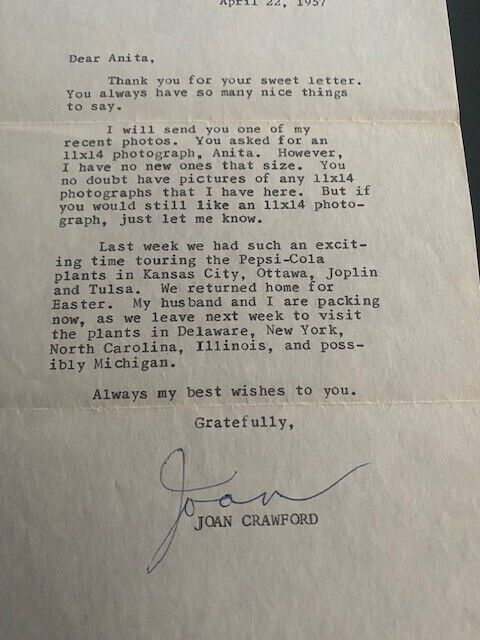 April 22, 1957
Dear Anita,
Thank you for your sweet letter.
You always have so many nice things
to say.
I will send you one of my
recent photos. You asked for an
11x14 photograph, Anita. However,
I have no new ones that size. You
no doubt have pictures of any 11x14
photographs that I have here. But if
you would still like an 11x14 photo-
graph, just let me know.
Last week we had such an excit-
ing time touring the Pepsi-Cola
plants in Kansas City, Ottawa, Joplin
and Tulsa. We returned home for
Easter. My husband and I are packing
now, as we leave next week to visit
the plants in Delaware, New York,
North Carolina, Illinois, and poss-
ibly Michigan.
Always my best wishes to you.
Gratefully,
Joan
JOAN CRAWFORD